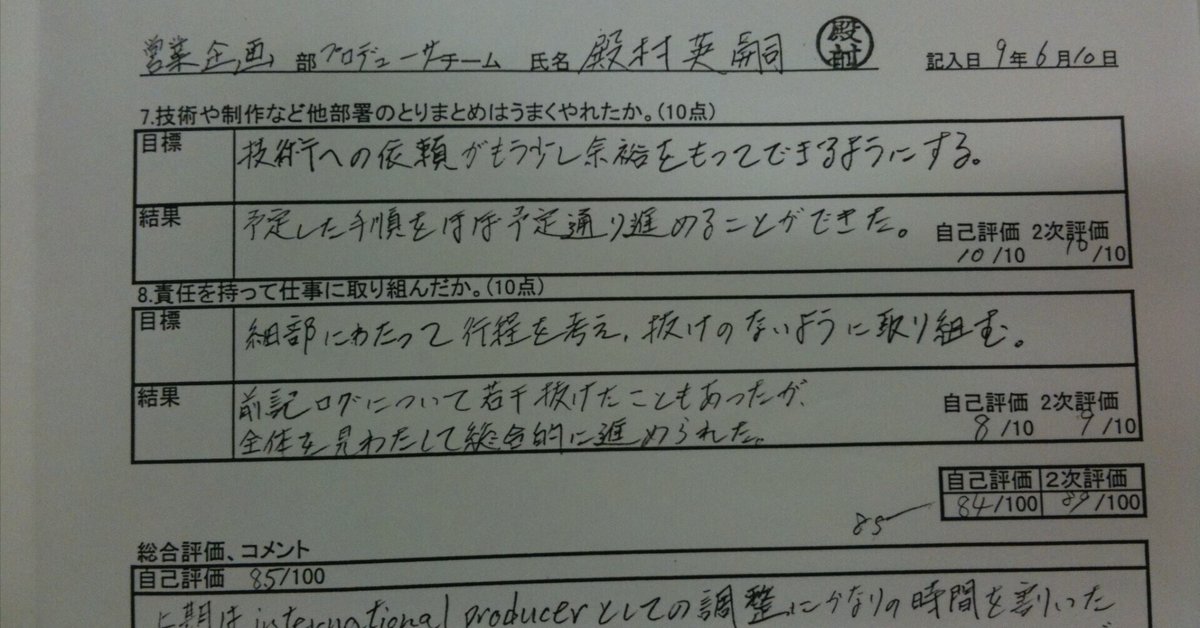 営業企画 部 プロデューサチーム 氏名 殿村英嗣 殿村 記入日 9年6月10日
7.技術や制作など他部署のとりまとめはうまくやれたか。(10点)
目標 技術への依頼がもう少し余裕をもってできるようにする。
結果 予定した手順をほぼ予定通り進めることができた。 自己評価 2次評価
10/10 10/10
8.責任を持って仕事に取り組んだか。(10点)
目標 細部にわたって行程を考え、抜けのないように取り組む。
結果 前記ログについて若干抜けたこともあったが、
全体を見わたして総合的に進められた。 自己評価 2次評価
8/10 9/10
自己評価 2次評価
84/100 89/100
85
総合評価、コメント
自己評価 85/100
上期はinternational producerとしての調整にかなりの時間を割いた